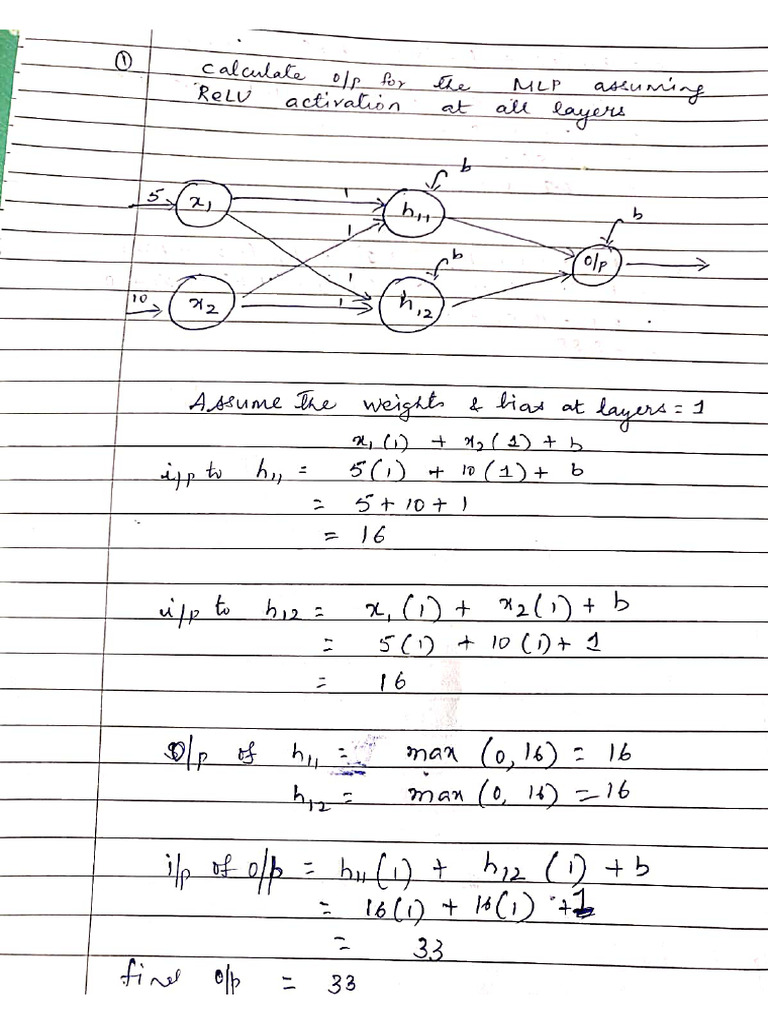 ① calculate o/p for the MLP assuming
ReLU activation at all layers
b
5 x₁ 1 h₁₁
1
b
b
o/p
1
10 x₂ 1 h₁₂
Assume the weights & bias at layers = 1
x₁(1) + x₂(1) + b
i/p to h₁₁ = 5(1) + 10(1) + b
= 5 + 10 + 1
= 16
i/p to h₁₂ = x₁(1) + x₂(1) + b
= 5(1) + 10(1) + 1
= 16
O/p of h₁₁ = max (0, 16) = 16
h₁₂ = max (0, 16) = 16
i/p of o/p = h₁₁(1) + h₁₂(1) + b
= 16(1) + 16(1) + 1
= 33
final o/p = 33